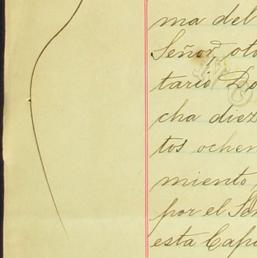 ma del
Señor, oto
tario Do
cha diez
tos ochen
miento,
por el Señ
esta Capi